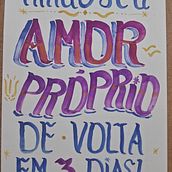 AMOR
PRÓPRIO
DE • VOLTA
EM 3 DIAS!